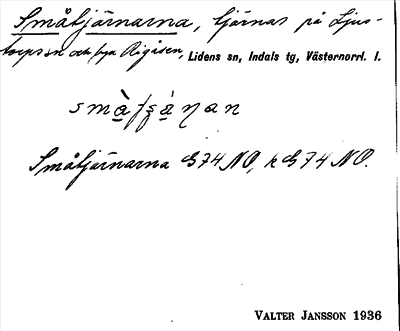 Småtjärnarna, tjärnar på Ljus-
torps sn och bya Rigåsen, Lidens sn, Indals tg, Västernorrl. l.
Småtjärnarna G74 NO, k G74 NO.
VALTER JANSSON 1936